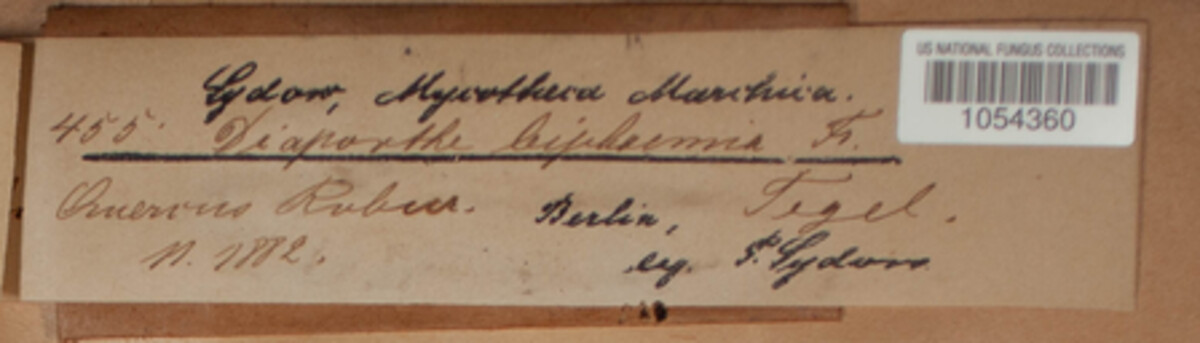 US NATIONAL FUNGUS COLLECTIONS
1054360
Sydow, Mycotheca Marchica.
455. Diaporthe leiphaemia Fr.
Quercus Robur. Berlin, Tegel.
11. 1882. leg. P. Sydow